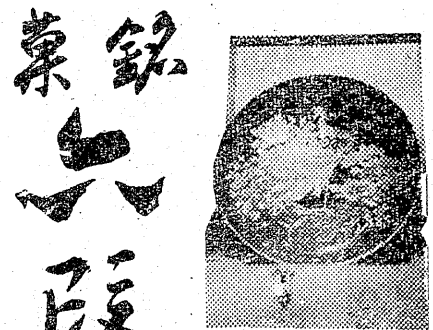 銘菓
六段